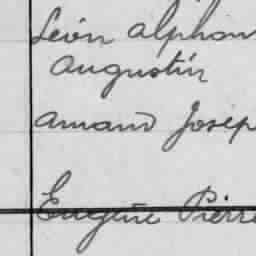 Léon Alphon
Augustin
Amand Josep
Eugène Pierre